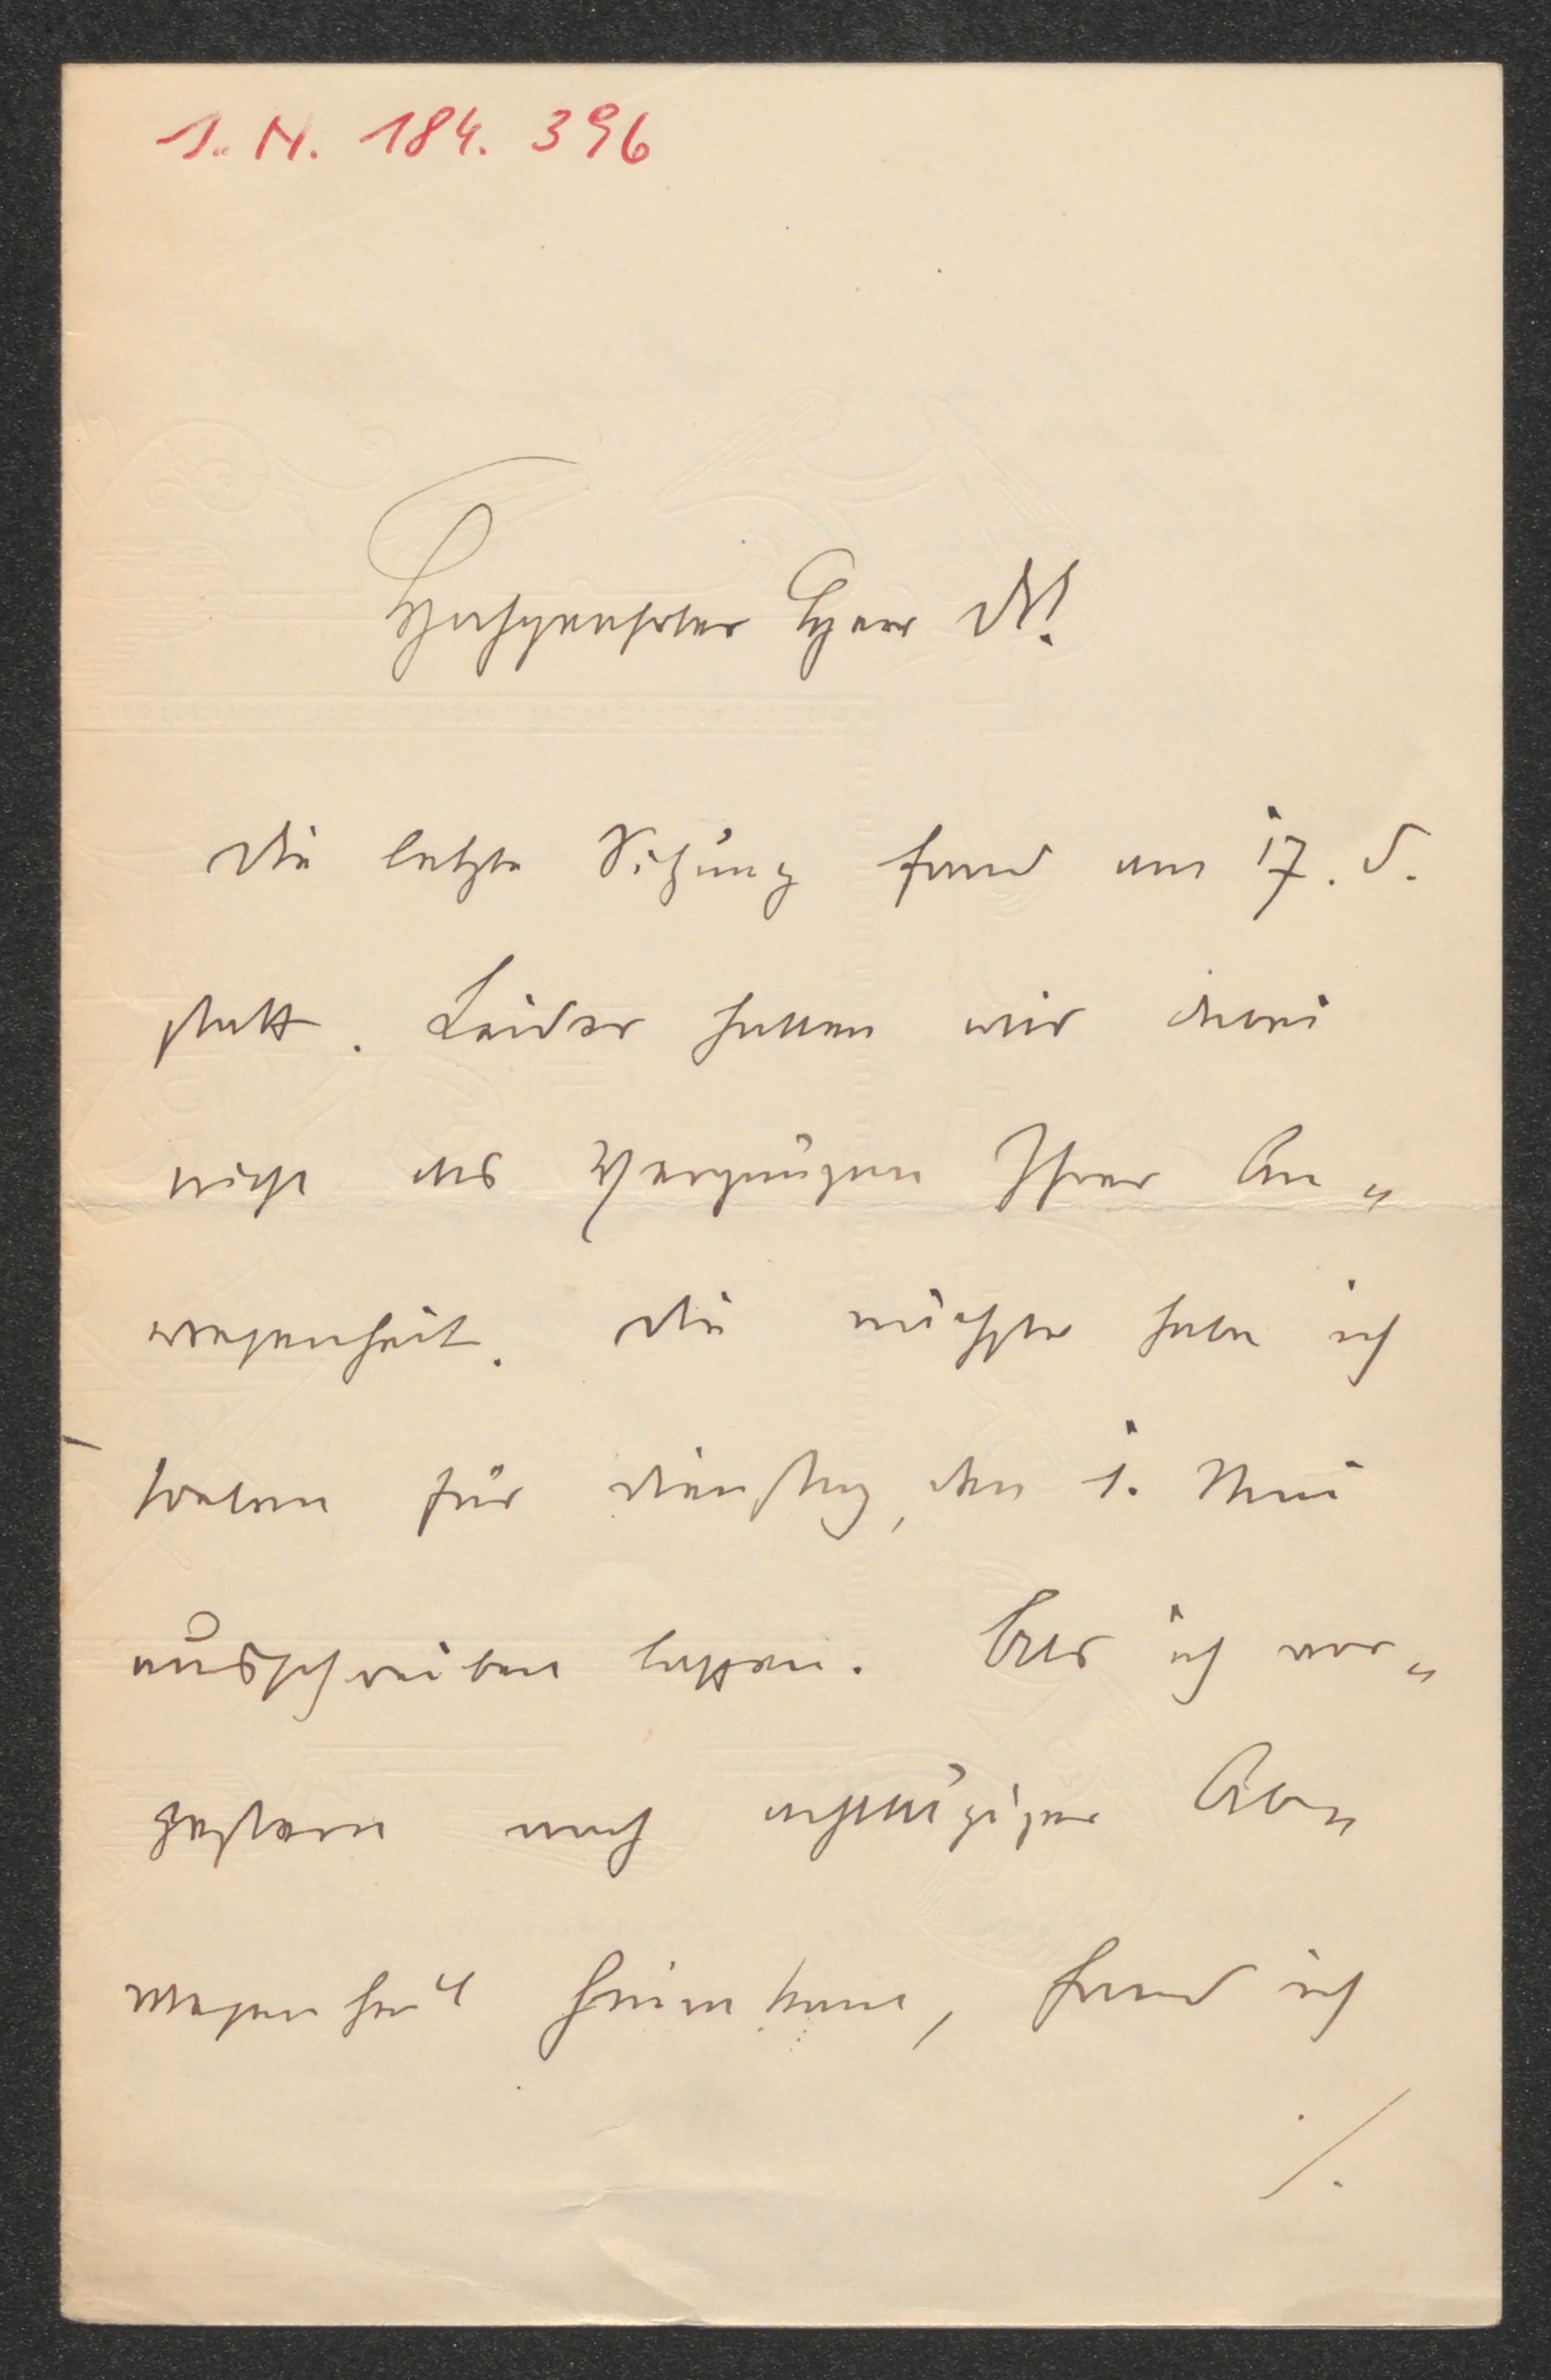 I. N. 184.396
Hochgeehrter Herr Dr!
Die letzte Sitzung fand am 17. d.
statt. Leider hatten wir dabei
nicht das Vergnügen Ihrer An„
wesenheit. Die nächste habe ich
soeben für Dienstag, den 1. Mai
ausschreiben lassen. Als ich vor„
gestern nach achttägiger Ab„
wesenheit heimkam, fand ich
./.